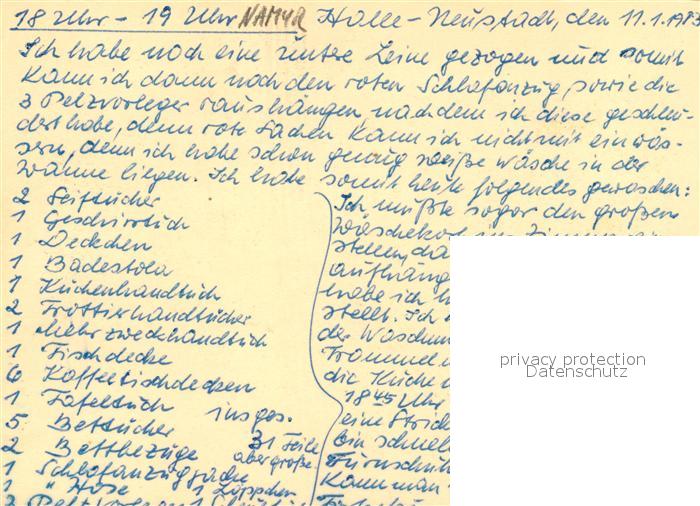 18 Uhr - 19 Uhr NAMUR Halle-Neustadt, den 11.1.1983
Ich habe noch eine untere Leine gezogen und somit
kann ich dann noch den roten Schlafanzug, sowie die
3 Pelzvorleger raushängen, nachdem ich diese geschleu-
dert habe, denn rote Sachen kann ich nicht mit einwäs-
sern, denn ich habe schon genug weiße Wäsche in der
Wanne liegen. Ich habe somit heute folgendes gewaschen:
2 Seiftücher
1 Geschirrtuch
1 Deckchen
1 Badestola
1 Küchenhandtuch
2 Frottierhandtücher
1 Mehrzweckhandtuch
1 Tischdecke
6 Kaffeetischdecken
1 Tafeltuch insges.
5 Bettücher 31 Teile
2 Bettbezüge aber große
1 Schlafanzugjacke
1 " Hose 1 Läppchen
Ich mußte sogar den großen
Wäschekorb
stellen, da
aufhäng
habe ich
stellt. Ich
der Waschm
Trommel
die Küche
18 45 Uhr
eine Strick
ein schnel
Turnschuh
kann man
privacy protection
Datenschutz